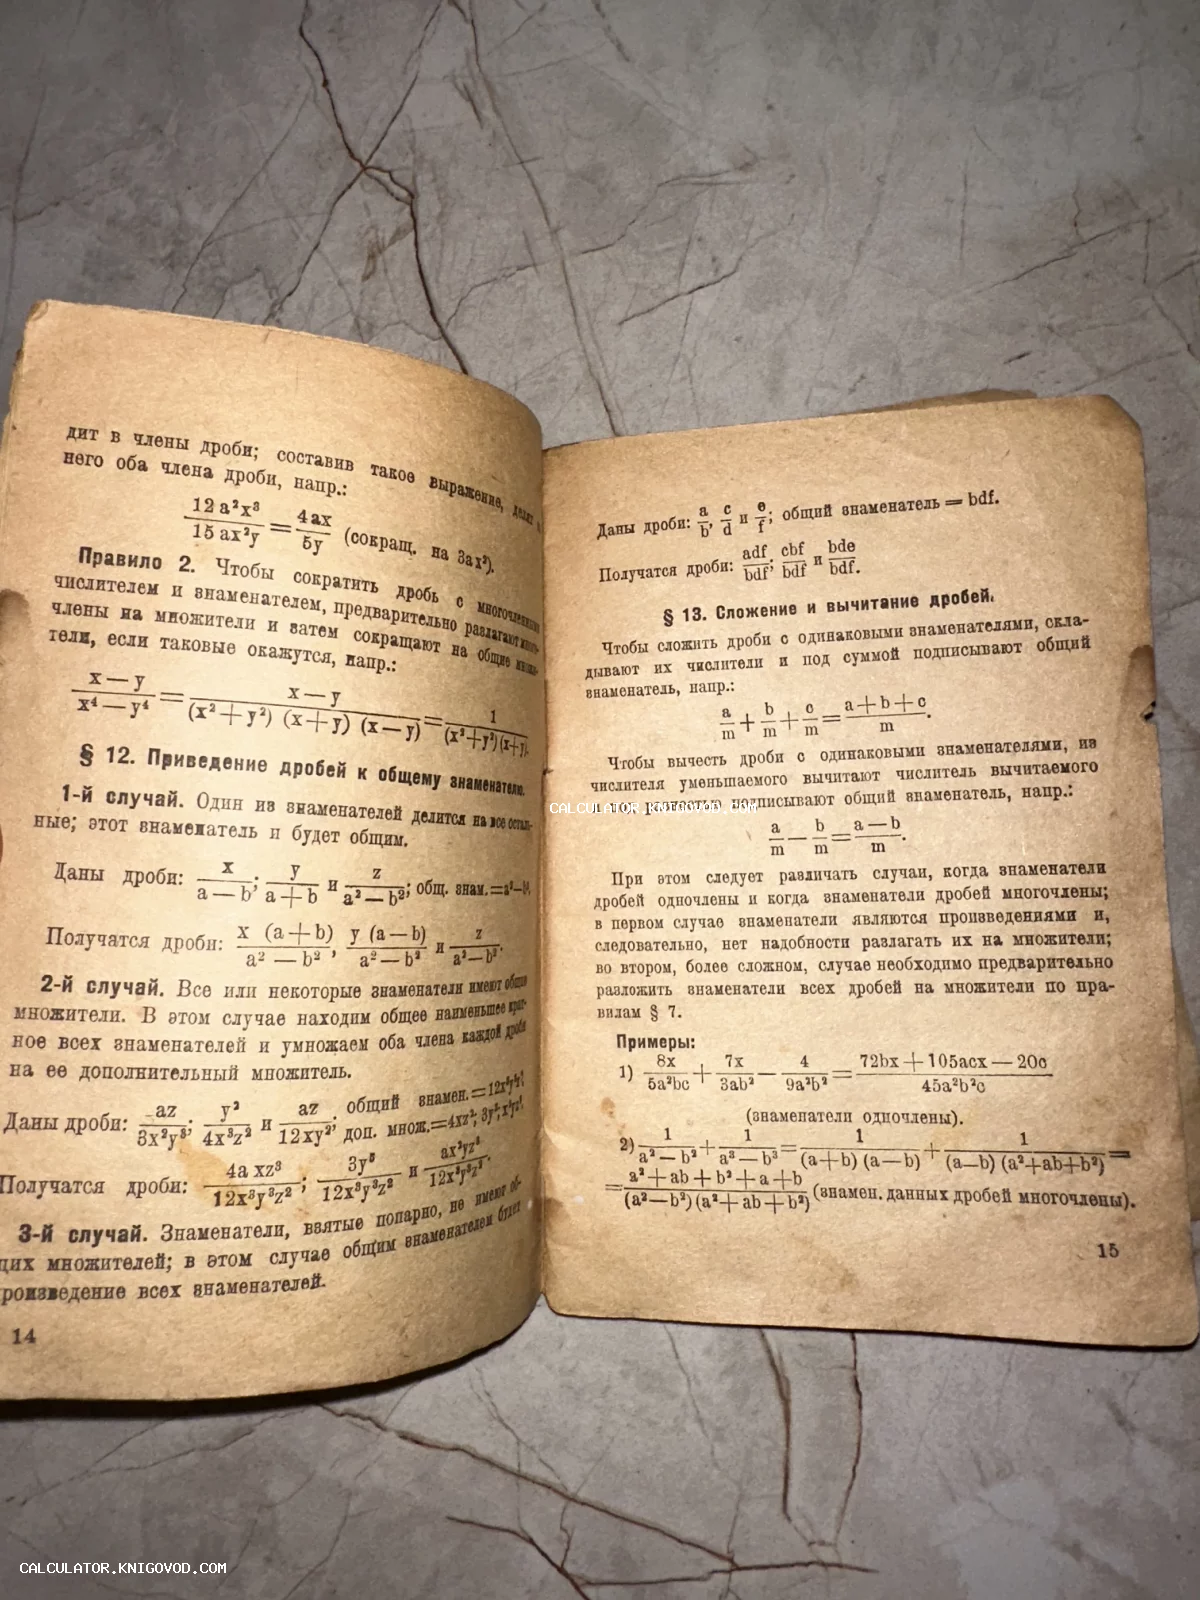 дит в члены дроби; составив такое выражение, делят
него оба члена дроби, напр.:
12 a²x³ / 15 ax²y = 4ax / 5y (сокращ. на 3ax²).
Правило 2. Чтобы сократить дробь с многочленными
числителем и знаменателем, предварительно разлагают
члены на множители и затем сокращают на общие множи-
тели, если таковые окажутся, напр.:
x — y / x⁴ — y⁴ = x — y / (x² + y²) (x + y) (x — y) = 1 / (x² + y²) (x + y).
§ 12. Приведение дробей к общему знаменателю.
1-й случай. Один из знаменателей делится на все осталь-
ные; этот знаменатель и будет общим.
Даны дроби: x / a — b; y / a + b и z / a² — b²; общ. знам. = a² — b².
Получатся дроби: x (a + b) / a² — b², y (a — b) / a² — b² и z / a² — b².
2-й случай. Все или некоторые знаменатели имеют общие
множители. В этом случае находим общее наименьшее крат-
ное всех знаменателей и умножаем оба члена каждой дроби
на ее дополнительный множитель.
Даны дроби: az / 3x²y³; y² / 4x³z² и az / 12xy²; общий знамен. = 12x³y³z²;
доп. множ. = 4xz²; 3y³; x²yz².
Получатся дроби: 4a xz³ / 12x³y³z²; 3y⁵ / 12x³y³z² и ax²yz³ / 12x³y³z².
3-й случай. Знаменатели, взятые попарно, не имеют об-
щих множителей; в этом случае общим знаменателем будет
произведение всех знаменателей.
14
Даны дроби: a / b, c / d и e / f; общий знаменатель = bdf.
Получатся дроби: adf / bdf; cbf / bdf и bde / bdf.
§ 13. Сложение и вычитание дробей.
Чтобы сложить дроби с одинаковыми знаменателями, скла-
дывают их числители и под суммой подписывают общий
знаменатель, напр.:
a / m + b / m + c / m = a + b + c / m.
Чтобы вычесть дроби с одинаковыми знаменателями, из
числителя уменьшаемого вычитают числитель вычитаемого
под разностью подписывают общий знаменатель, напр.:
CALCULATOR.KNIGOVOD.COM
a / m — b / m = a — b / m.
При этом следует различать случаи, когда знаменатели
дробей одночлены и когда знаменатели дробей многочлены;
в первом случае знаменатели являются произведениями и,
следовательно, нет надобности разлагать их на множители;
во втором, более сложном, случае необходимо предварительно
разложить знаменатели всех дробей на множители по пра-
вилам § 7.
Примеры:
1) 8x / 5a²bc + 7x / 3ab² — 4 / 9a²b² = 72bx + 105acx — 20c / 45a²b²c
(знаменатели одночлены).
2) 1 / a² — b² + 1 / a³ — b³ = 1 / (a + b) (a — b) + 1 / (a — b) (a² + ab + b²) =
= a² + ab + b² + a + b / (a² — b²) (a² + ab + b²) (знамен. данных дробей многочлены).
15
CALCULATOR.KNIGOVOD.COM